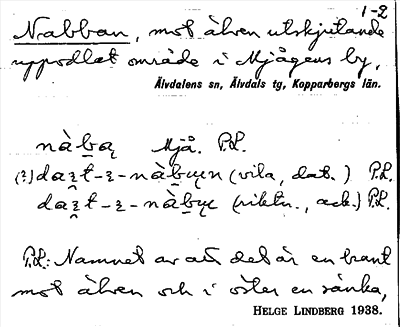 1-2
Nabban, mot älven utskjutande
uppodlat område i Mjågens by,
Älvdalens sn, Älvdals tg, Kopparbergs län.
nàbą Mjå. P.L.
(?) daʒt-ʒ-nàbųɩn (vila, dat.) P.L.
daʒt-ʒ-nàbųɩ (riktn., ack.) P.L.
P.L: Namnet av att det är en brant
mot älven och i öster en sänka,
HELGE LINDBERG 1938.